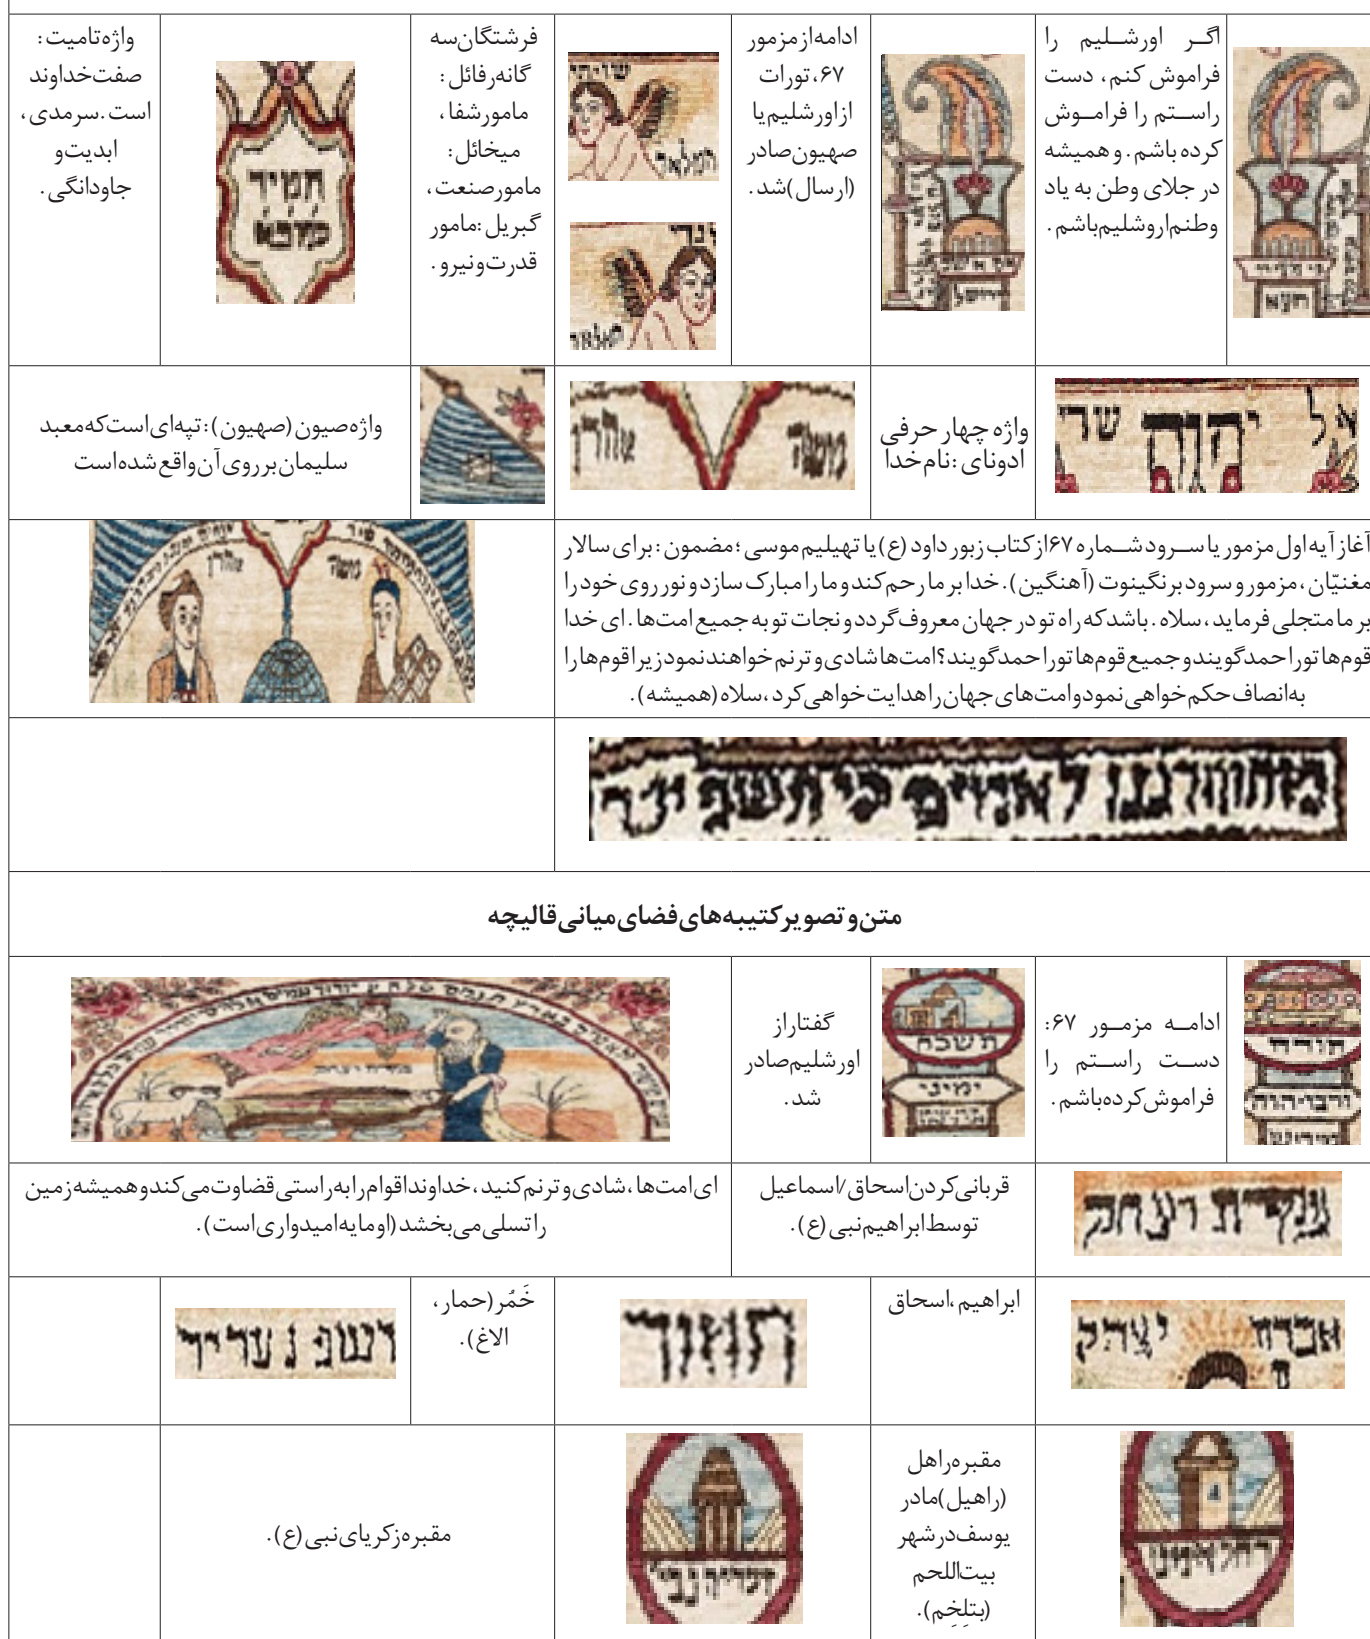 اگر اورشلیم را
فراموش کنم، دست
راستم را فراموش
کرده باشم. و همیشه
در جلای وطن به یاد
وطنم اروشلیم باشم.
ادامه از مزمور
۶۷، تورات
از اورشلیم یا
صهیون صادر
(ارسال) شد.
فرشتگان سه
گانه رفائل:
مامور شفا،
میخائل:
مامور صنعت،
گبریل: مامور
قدرت و نیرو.
واژه تامیت:
صفت خداوند
است. سرمدی،
ابدیت و
جاودانگی.
תמיד
המלאך
אל יהוה שדי
واژه چهار حرفی
ادونای: نام خدا
משה
אהרן
واژه صیون (صهیون): تپه‌ای است که معبد
سلیمان بر روی آن واقع شده است
آغاز آیه اول مزمور یا سرود شماره ۶۷ از کتاب زبور داود (ع) یا تهیلیم موسی؛ مضمون: برای سالار
مغنیّان، مزمور و سرود بر نگینوت (آهنگین). خدا بر ما رحم کند و ما را مبارک سازد و نور روی خود را
بر ما متجلی فرماید، سلاه. باشد که راه تو در جهان معروف گردد و نجات تو به جمیع امت‌ها. ای خدا
قوم‌ها تو را حمد گویند و جمیع قوم‌ها تو را حمد گویند؟ امت‌ها شادی و ترنم خواهند نمود زیرا قوم‌ها را
به انصاف حکم خواهی نمود و امت‌های جهان را هدایت خواهی کرد، سلاه (همیشه).
משה
אהרן
متن و تصویر کتیبه‌های فضای میانی قالیچه
תורה
ادامه مزمور ۶۷:
دست راستم را
فراموش کرده باشم.
תשכח
ימיני
گفتار از
اورشلیم صادر
شد.
قربانی کردن اسحاق/اسماعیل
توسط ابراهیم نبی (ع).
ای امت‌ها، شادی و ترنم کنید، خداوند اقوام را به راستی قضاوت می‌کند و همیشه زمین
را تسلی می‌بخشد (او مایه امیدواری است).
ابراهیم، اسحاق
خَمُر (حمار،
الاغ).
مقبره راهل
(راهیل) مادر
یوسف در شهر
بیت‌اللحم
(بتلِخِم).
مقبره زکریای نبی (ع).